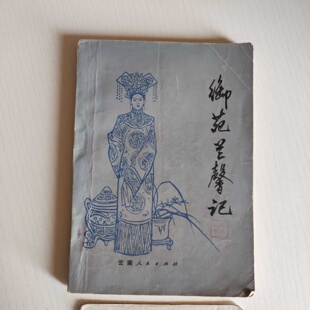 御苑兰馨记
云南人民出版社